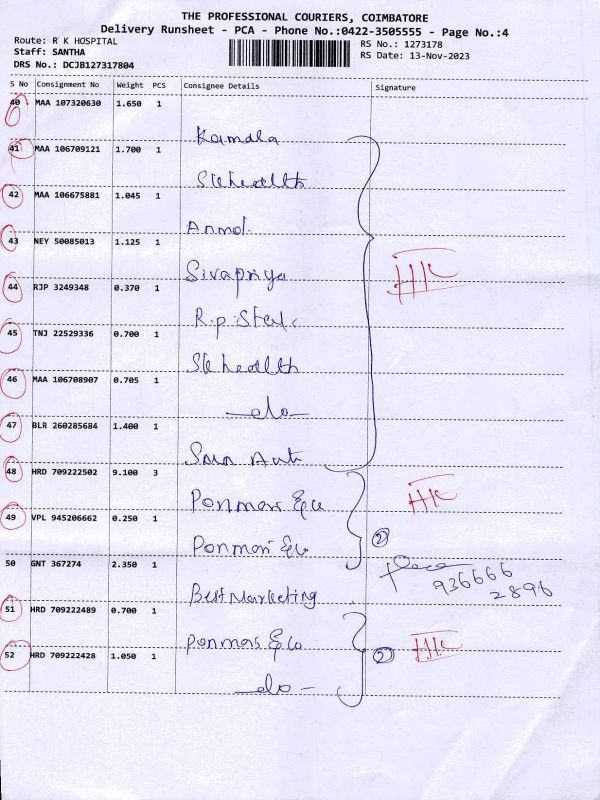 THE PROFESSIONAL COURIERS, COIMBATORE
Delivery Runsheet - PCA - Phone No.:0422-3505555 - Page No.:4
Route: R K HOSPITAL
RS No.: 1273178
Staff: SANTHA
RS Date: 13-Nov-2023
DRS No.: DCJB127317804
S No Consignment No Weight PCS Consignee Details Signature
40 MAA 107320630 1.650 1
Kamala
41 MAA 106709121 1.700 1
Sk health
42 MAA 106675881 1.045 1
Anmol
43 NEY 50085013 1.125 1
Sivapriya
44 RJP 3249348 0.370 1
R.p. Steel
45 TNJ 22529336 0.700 1
Sk health
46 MAA 106708907 0.705 1
-do-
47 BLR 260285684 1.400 1
48 HRD 709222502 9.100 3
Ponmari & Co
49 VPL 945206662 0.250 1
Ponmari & Co
2
50 GNT 367274 2.350 1
936666
2896
Best Marketing
51 HRD 709222489 0.700 1
Ponmari & Co
52 HRD 709222428 1.050 1
2
-do-